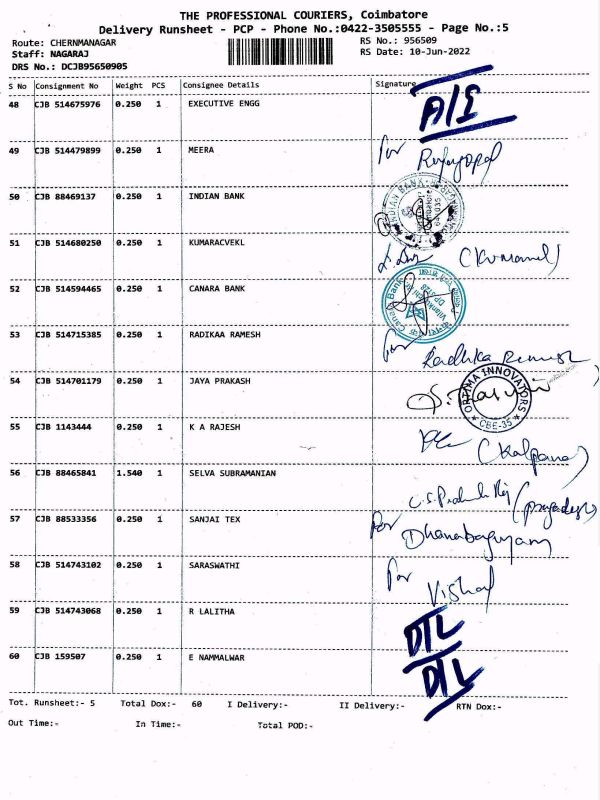 THE PROFESSIONAL COURIERS, Coimbatore
Delivery Runsheet - PCP - Phone No.:0422-3505555 - Page No.:5
Route: CHERNMANAGAR
RS No.: 956509
Staff: NAGARAJ
RS Date: 10-Jun-2022
DRS No.: DCJB95650905
S No Consignment No Weight PCS Consignee Details Signature
48 CJB 514675976 0.250 1 EXECUTIVE ENGG
49 CJB 514479899 0.250 1 MEERA for
50 CJB 88469137 0.250 1 INDIAN BANK INDIAN BANK
51 CJB 514680250 0.250 1 KUMARACVEKL
52 CJB 514594465 0.250 1 CANARA BANK Canara Bank
53 CJB 514715385 0.250 1 RADIKAA RAMESH for Radhika Ramesh
54 CJB 514701179 0.250 1 JAYA PRAKASH ORTIMA INNOVATORS * CBE-35 *
55 CJB 1143444 0.250 1 K A RAJESH (Kalpana)
56 CJB 88465841 1.540 1 SELVA SUBRAMANIAN
57 CJB 88533356 0.250 1 SANJAI TEX for
58 CJB 514743102 0.250 1 SARASWATHI for Vishal
59 CJB 514743068 0.250 1 R LALITHA DTL
60 CJB 159507 0.250 1 E NAMMALWAR DTL
Tot. Runsheet:- 5 Total Dox:- 60 I Delivery:- II Delivery:- RTN Dox:-
Out Time:- In Time:- Total POD:-